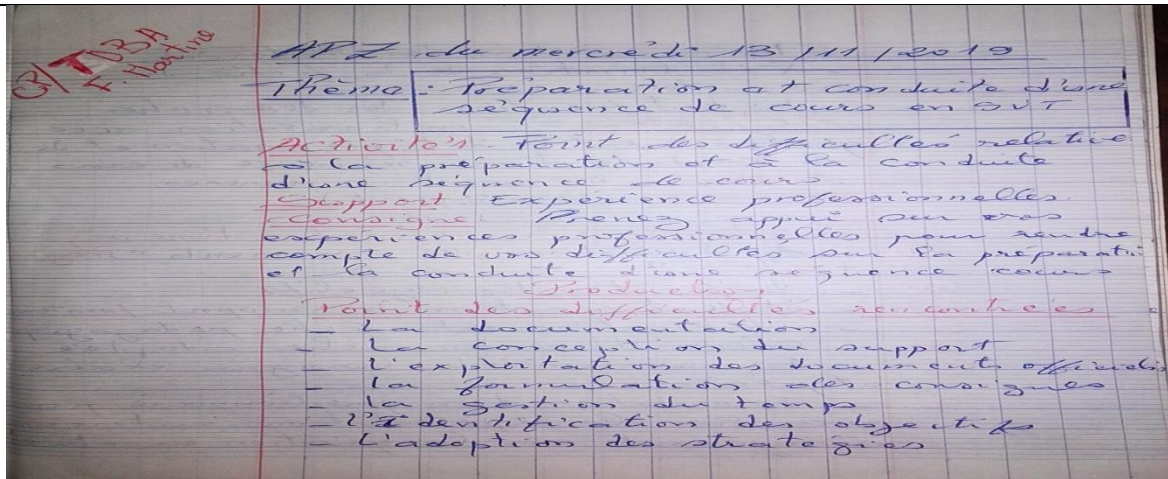 CP/TABA
F. Martine
APZ du mercredi 13/11/2019
Thème : Préparation et conduite d'une
séquence de cours en SVT
Activité 1 Point des difficultés relative
à la préparation et à la conduite
d'une séquence de cours
Support Expérience professionnelles.
Consigne: Prenez appui sur vos
expériences professionnelles pour rendre
compte de vos difficultés sur la préparati
et la conduite d'une séquence cours
Production
Point des difficultés rencontrées
- La documentation
- La conception du support
- L'exploitation des documents officiels
- La formulation des consignes
- La gestion du temps
- L'Identification des objectifs
- L'adoption des stratégies